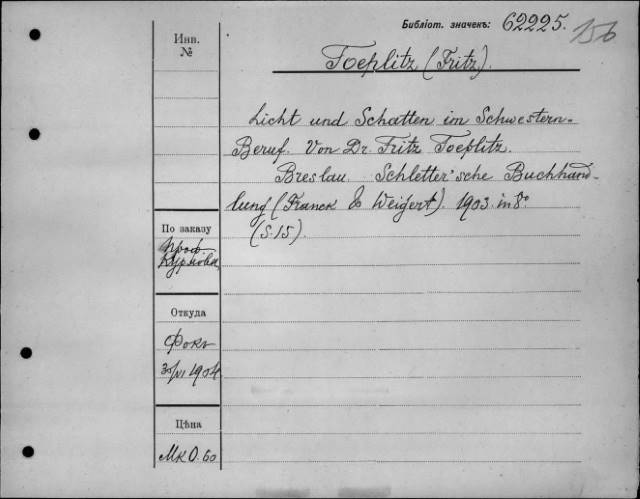 Библіот. значекъ: 62225.
156
Инв.
№
Toeplitz (Fritz).
Licht und Schatten im Schwestern-
Beruf. Von Dr. Fritz Toeplitz.
Breslau. Schletter'sche Buchhand-
lung (Franck & Weigert). 1903. in 8°
(S. 15).
По заказу
Проф.
Откуда
Фокъ
30/VI 1904
Цѣна
Mk 0.60